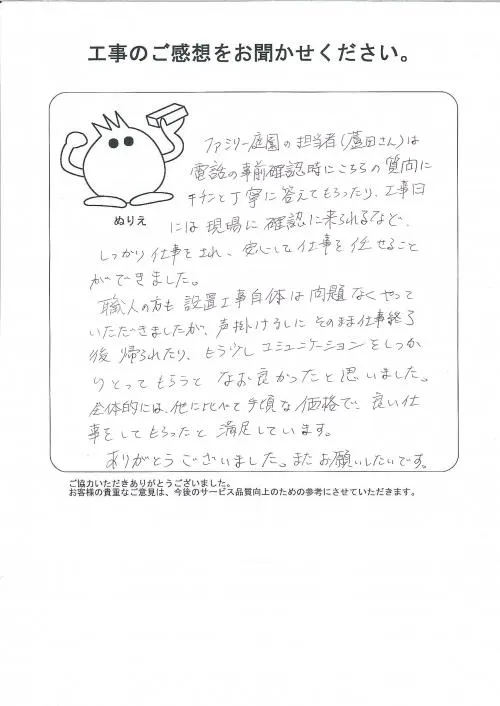 工事のご感想をお聞かせください。
ファミリー庭園の担当者(蘆田さん)は
電話の事前確認時にこちらの質向に
キチンと丁寧に答えてもらったり、工事日
には現場に確認に来られるなど、
しっかり仕事をされ、安心して仕事を任せること
ができました。
職人の方も設置工事自体は問題なくやって
いただきましたが、声掛けなしにそのまま仕事終了
後帰られたり、もう少しコミュニケーションをしっか
りとってもらうとなお良かったと思いました。
全体的には、他に比べて手頃な価格で、良い仕
事をしてもらったと満足しています。
ありがとうございました。またお願いしたいです。
ぬりえ
ご協力いただきありがとうございました。
お客様の貴重なご意見は、今後のサービス品質向上のための参考にさせていただきます。